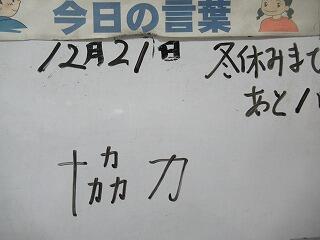 今日の言葉
12月21日
冬休みまで
あと1
協力